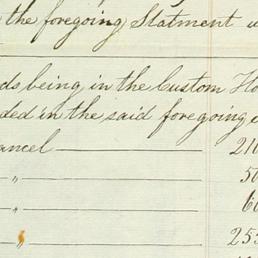 the foregoing Statment
ds being in the Custom Ho
ded in the said foregoing
ancel 210
" 50
" 60
" 255